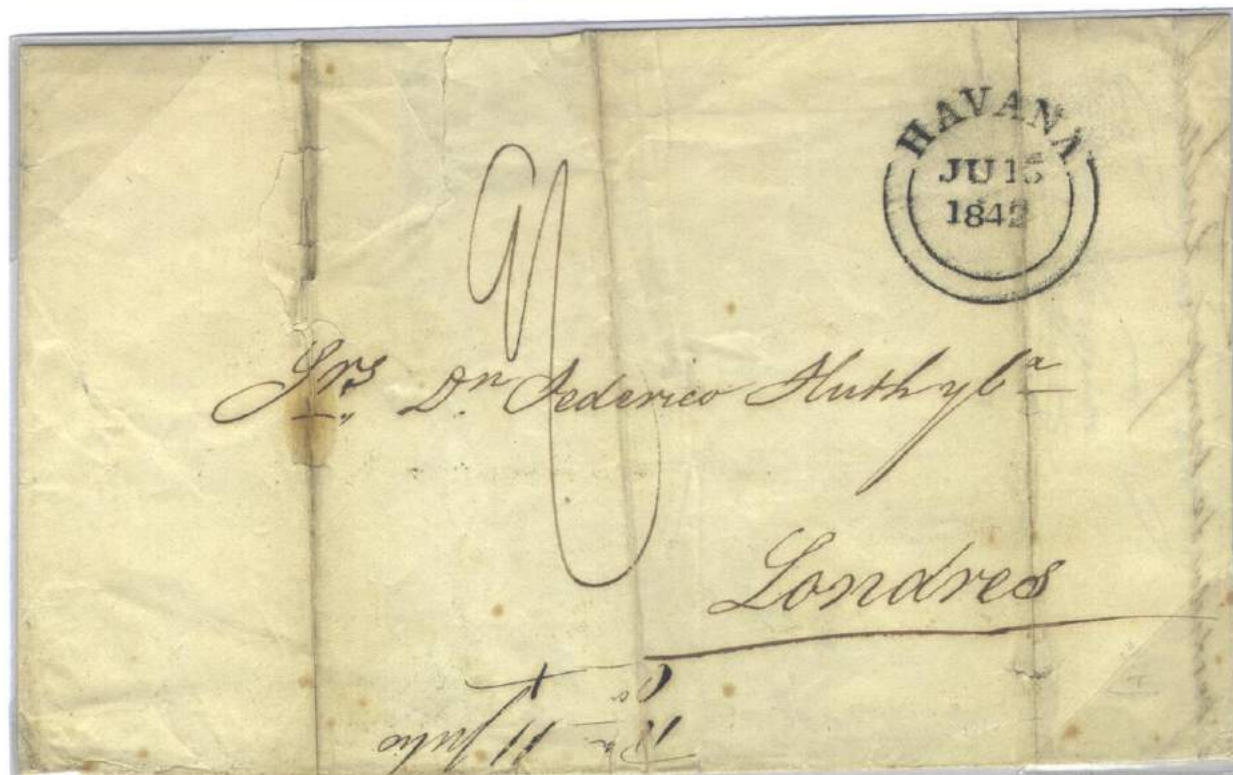 HAVANA
JU 15
1842
Srs Dn Federico Huth y Ca
Londres
11 Julio